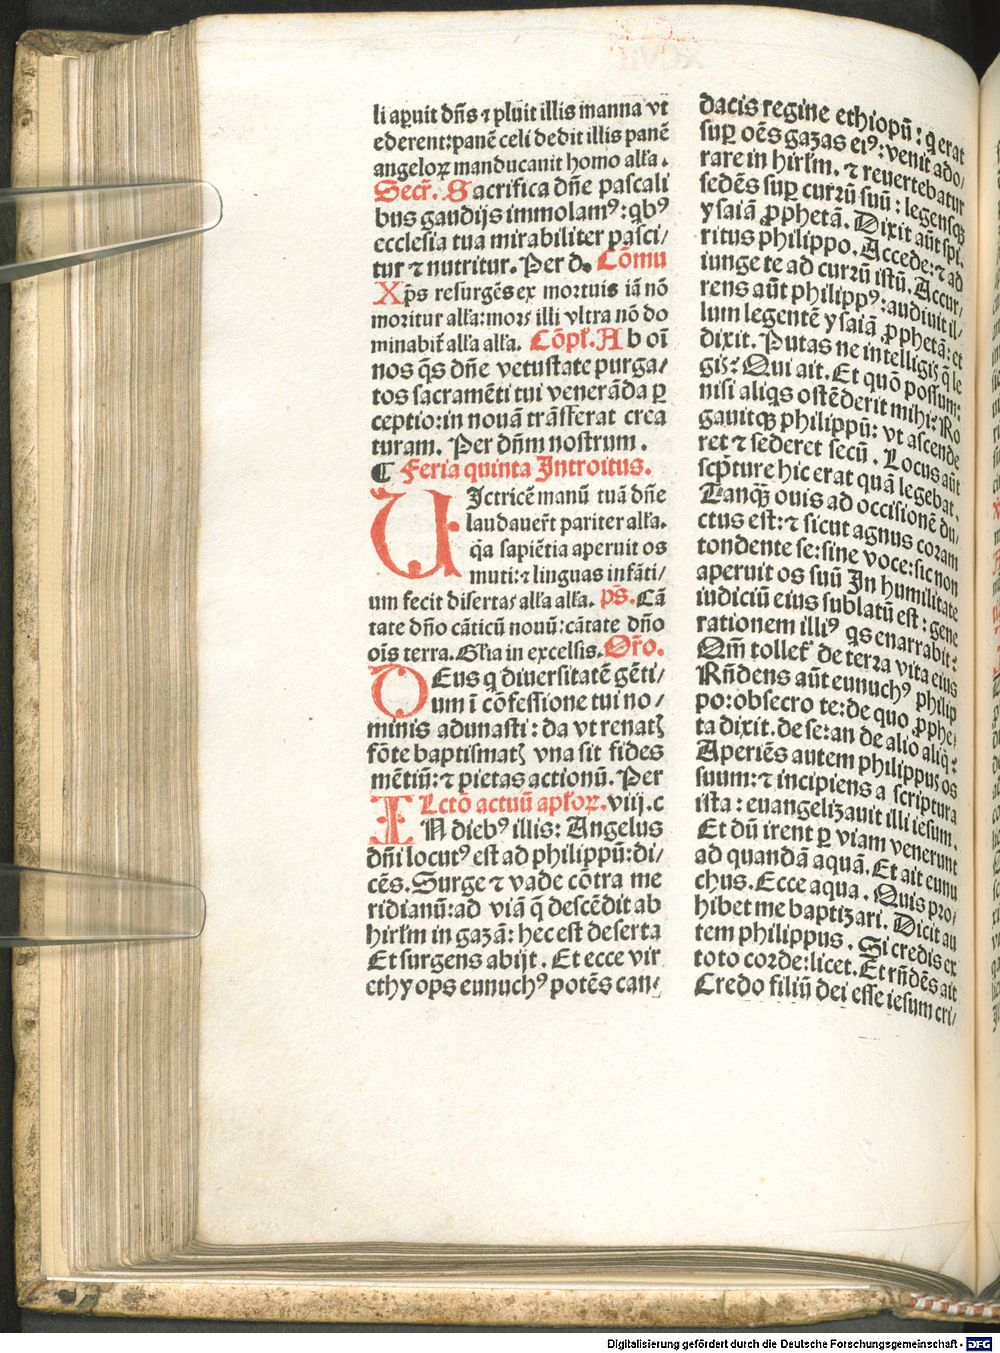 li aꝑuit dn̄s ⁊ pluit illis manna vt
ederent:panē celi dedit illis panē
angeloꝝ manducauit homo alľa.
Secr̄. Sacrifica dn̄e pascali
bus gaudijs immolamꝰ:qbꝰ
ecclesia tua mirabiliter pasci/
tur ⁊ nutritur. Per d. Cōmu
Xp̄s resurgēs ex mortuis iā nō
moritur alľa:mors illi vltra nō do
minabit̄ alľa alľa. Cōpľ. Ab oī
nos q̄s dn̄e vetustate purga/
tos sacramēti tui venerāda ꝑ
ceptio:in nouā trāsferat crea
turam. Per dn̄m nostrum.
¶ Feria quinta Introitus.
UIctricē manū tuā dn̄e
laudauer̄t pariter alľa.
q̄a sapiētia aperuit os
muti:⁊ linguas infāti/
um fecit disertas alľa alľa. ps̄. Cā
tate dn̄o cāticū nouū:cātate dn̄o
oīs terra. Gľia in excelsis. Or̄o.
DEus q diuersitatē gēti/
um ī cōfessione tui no/
minis adunasti: da vt renatꝭ
fōte baptismatꝭ vna sit fides
mētiū:⁊ pietas actionū. Per
Lctō actuū apľoꝝ. viij. c
IN diebꝰ illis: Angelus
dn̄i locutꝰ est ad philippū:di/
cēs. Surge ⁊ vade cōtra me
ridianū:ad viā q̄ descēdit ab
hirľm in gazā: hec est deserta
Et surgens abijt. Et ecce vir
ethyops eunuchꝰ potēs can/
dacis regine ethiopū: q erat
suꝑ oēs gazas eiꝰ: venit ado/
rare in hirľm. ⁊ reuertebatur
sedēs suꝑ currū suū: legensqꝫ
ysaiā ꝓphetā. Dixit aūt spi.
ritus philippo. Accede:⁊ ad
iunge te ad currū istū. Accur/
rens aūt philippꝰ: audiuit il/
lum legentē ysaiā ꝓphetā: et
dixit. Putas ne intelligis q̄ le
gis? Qui ait. Et quō possum:
nisi aliqs ostēderit mihi? Ro
gauitqꝫ philippū: vt ascende
ret ⁊ sederet secū. Locus aūt
scp̄ture hic erat quā legebat.
Tanqꝫ ouis ad occisionē du/
ctus est:⁊ sicut agnus coram
tondente se:sine voce:sic non
aperuit os suū In humilitate
iudiciū eius sublatū est: gene
rationem illiꝰ qs enarrabit?
Qm̄ tollet̄ de terra vita eius
Rn̄dens aūt eunuchꝰ philip
po:obsecro te:de quo ꝓphe/
ta dixit. de se:an de alio aliq?
Aperiēs autem philippus os
suum:⁊ incipiens a scriptura
ista: euangelizauit illi iesum.
Et dū irent ꝑ viam venerunt
ad quandā aquā. Et ait eunu
chus. Ecce aqua. Quis pro/
hibet me baptizari. Dicit au
tem philippus. Si credis ex
toto corde:licet. Et rn̄dēs ait
Credo filiū dei esse iesum cri/
Digitalisierung gefördert durch die Deutsche Forschungsgemeinschaft - DFG